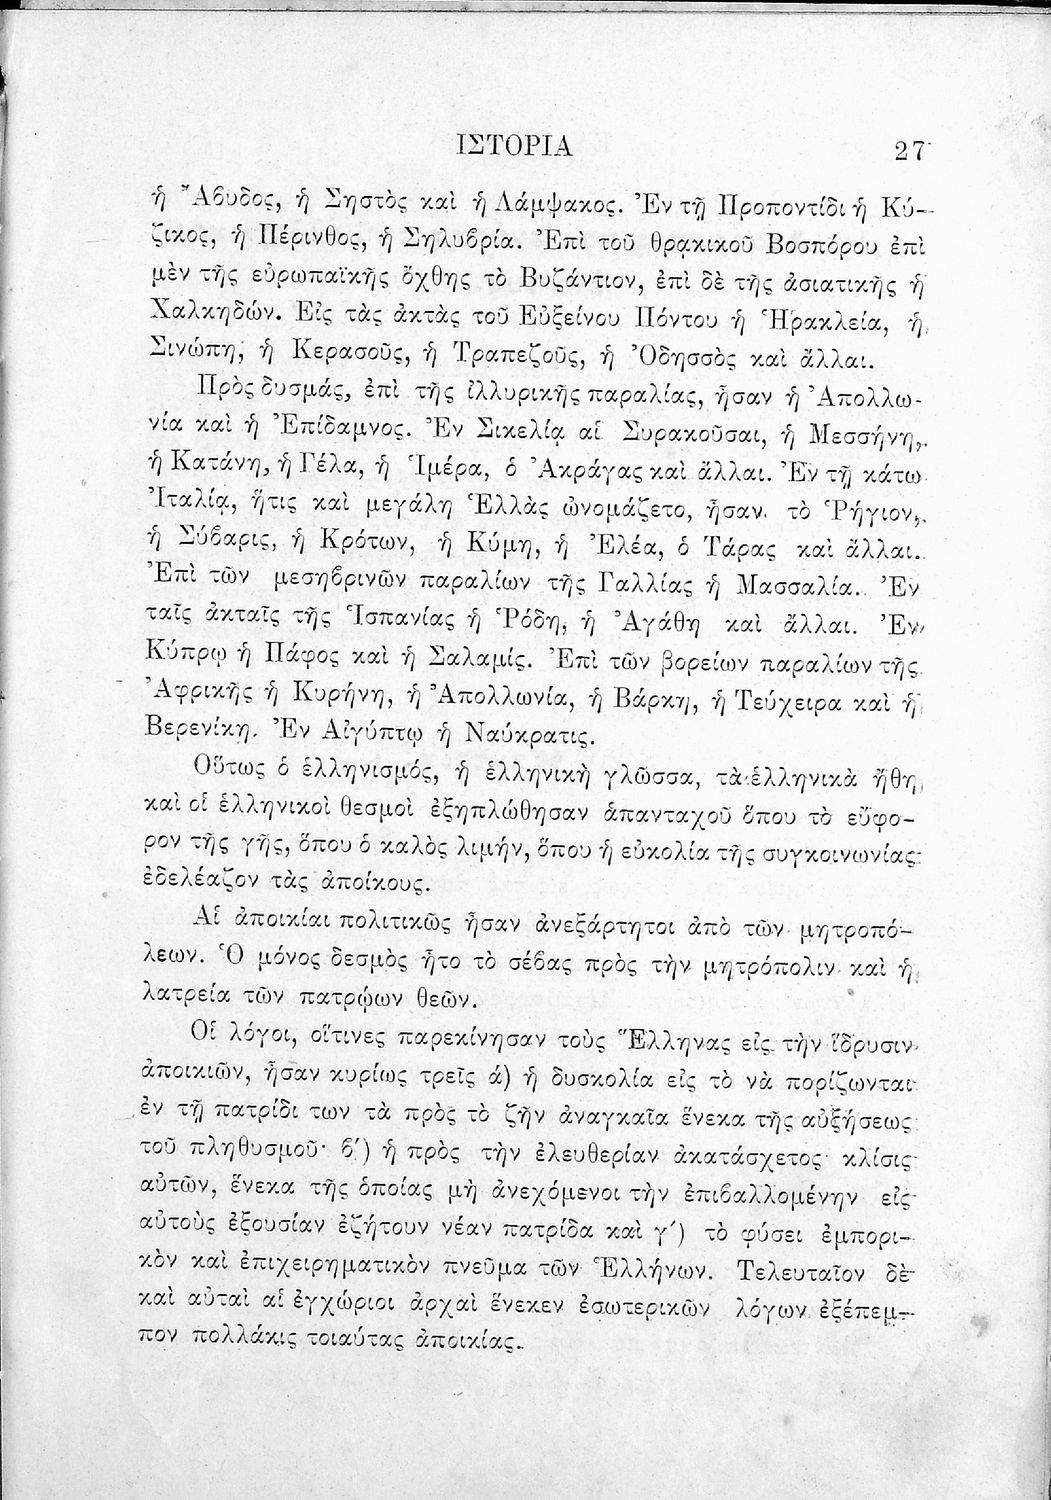 ΙΣΤΟΡΙΑ 27
ἡ Ἄβυδος, ἡ Σηστὸς καὶ ἡ Λάμψακος. Ἐν τῇ Προποντίδι ἡ Κύ-
ζικος, ἡ Πέρινθος, ἡ Σηλυβρία. Ἐπὶ τοῦ θρᾳκικοῦ Βοσπόρου ἐπὶ
μὲν τῆς εὐρωπαϊκῆς ὄχθης τὸ Βυζάντιον, ἐπὶ δὲ τῆς ἀσιατικῆς ἡ
Χαλκηδών. Εἰς τὰς ἀκτὰς τοῦ Εὐξείνου Πόντου ἡ Ἡρακλεία, ἡ
Σινώπη, ἡ Κερασοῦς, ἡ Τραπεζοῦς, ἡ Ὀδησσὸς καὶ ἄλλαι.
Πρὸς δυσμάς, ἐπὶ τῆς ἰλλυρικῆς παραλίας, ἦσαν ἡ Ἀπολλω-
νία καὶ ἡ Ἐπίδαμνος. Ἐν Σικελίᾳ αἱ Συρακοῦσαι, ἡ Μεσσήνη,
ἡ Κατάνη, ἡ Γέλα, ἡ Ἱμέρα, ὁ Ἀκράγας καὶ ἄλλαι. Ἐν τῇ κάτω
Ἰταλίᾳ, ἥτις καὶ μεγάλη Ἑλλὰς ὠνομάζετο, ἦσαν τὸ Ῥήγιον,
ἡ Σύβαρις, ἡ Κρότων, ἡ Κύμη, ἡ Ἐλέα, ὁ Τάρας καὶ ἄλλαι.
Ἐπὶ τῶν μεσηβρινῶν παραλίων τῆς Γαλλίας ἡ Μασσαλία. Ἐν
ταῖς ἀκταῖς τῆς Ἱσπανίας ἡ Ῥόδη, ἡ Ἀγάθη καὶ ἄλλαι. Ἐν
Κύπρῳ ἡ Πάφος καὶ ἡ Σαλαμίς. Ἐπὶ τῶν βορείων παραλίων τῆς
Ἀφρικῆς ἡ Κυρήνη, ἡ Ἀπολλωνία, ἡ Βάρκη, ἡ Τεύχειρα καὶ ἡ
Βερενίκη. Ἐν Αἰγύπτῳ ἡ Ναύκρατις.
Οὕτως ὁ ἑλληνισμός, ἡ ἑλληνικὴ γλῶσσα, τὰ ἑλληνικὰ ἤθη
καὶ οἱ ἑλληνικοὶ θεσμοὶ ἐξηπλώθησαν ἁπανταχοῦ ὅπου τὸ εὔφο-
ρον τῆς γῆς, ὅπου ὁ καλὸς λιμήν, ὅπου ἡ εὐκολία τῆς συγκοινωνίας
ἐδελέαζον τὰς ἀποίκους.
Αἱ ἀποικίαι πολιτικῶς ἦσαν ἀνεξάρτητοι ἀπὸ τῶν μητροπό-
λεων. Ὁ μόνος δεσμὸς ἦτο τὸ σέβας πρὸς τὴν μητρόπολιν καὶ ἡ
λατρεία τῶν πατρῴων θεῶν.
Οἱ λόγοι, οἵτινες παρεκίνησαν τοὺς Ἕλληνας εἰς τὴν ἵδρυσιν
ἀποικιῶν, ἦσαν κυρίως τρεῖς ά) ἡ δυσκολία εἰς τὸ νὰ πορίζωνται
ἐν τῇ πατρίδι των τὰ πρὸς τὸ ζῆν ἀναγκαῖα ἕνεκα τῆς αὐξήσεως
τοῦ πληθυσμοῦ· β΄) ἡ πρὸς τὴν ἐλευθερίαν ἀκατάσχετος κλίσις
αὐτῶν, ἕνεκα τῆς ὁποίας μὴ ἀνεχόμενοι τὴν ἐπιβαλλομένην εἰς
αὐτοὺς ἐξουσίαν ἐζήτουν νέαν πατρίδα καὶ γ΄) τὸ φύσει ἐμπορι-
κὸν καὶ ἐπιχειρηματικὸν πνεῦμα τῶν Ἑλλήνων. Τελευταῖον δὲ
καὶ αὐταὶ αἱ ἐγχώριοι ἀρχαὶ ἕνεκεν ἐσωτερικῶν λόγων ἐξέπεμ-
πον πολλάκις τοιαύτας ἀποικίας.